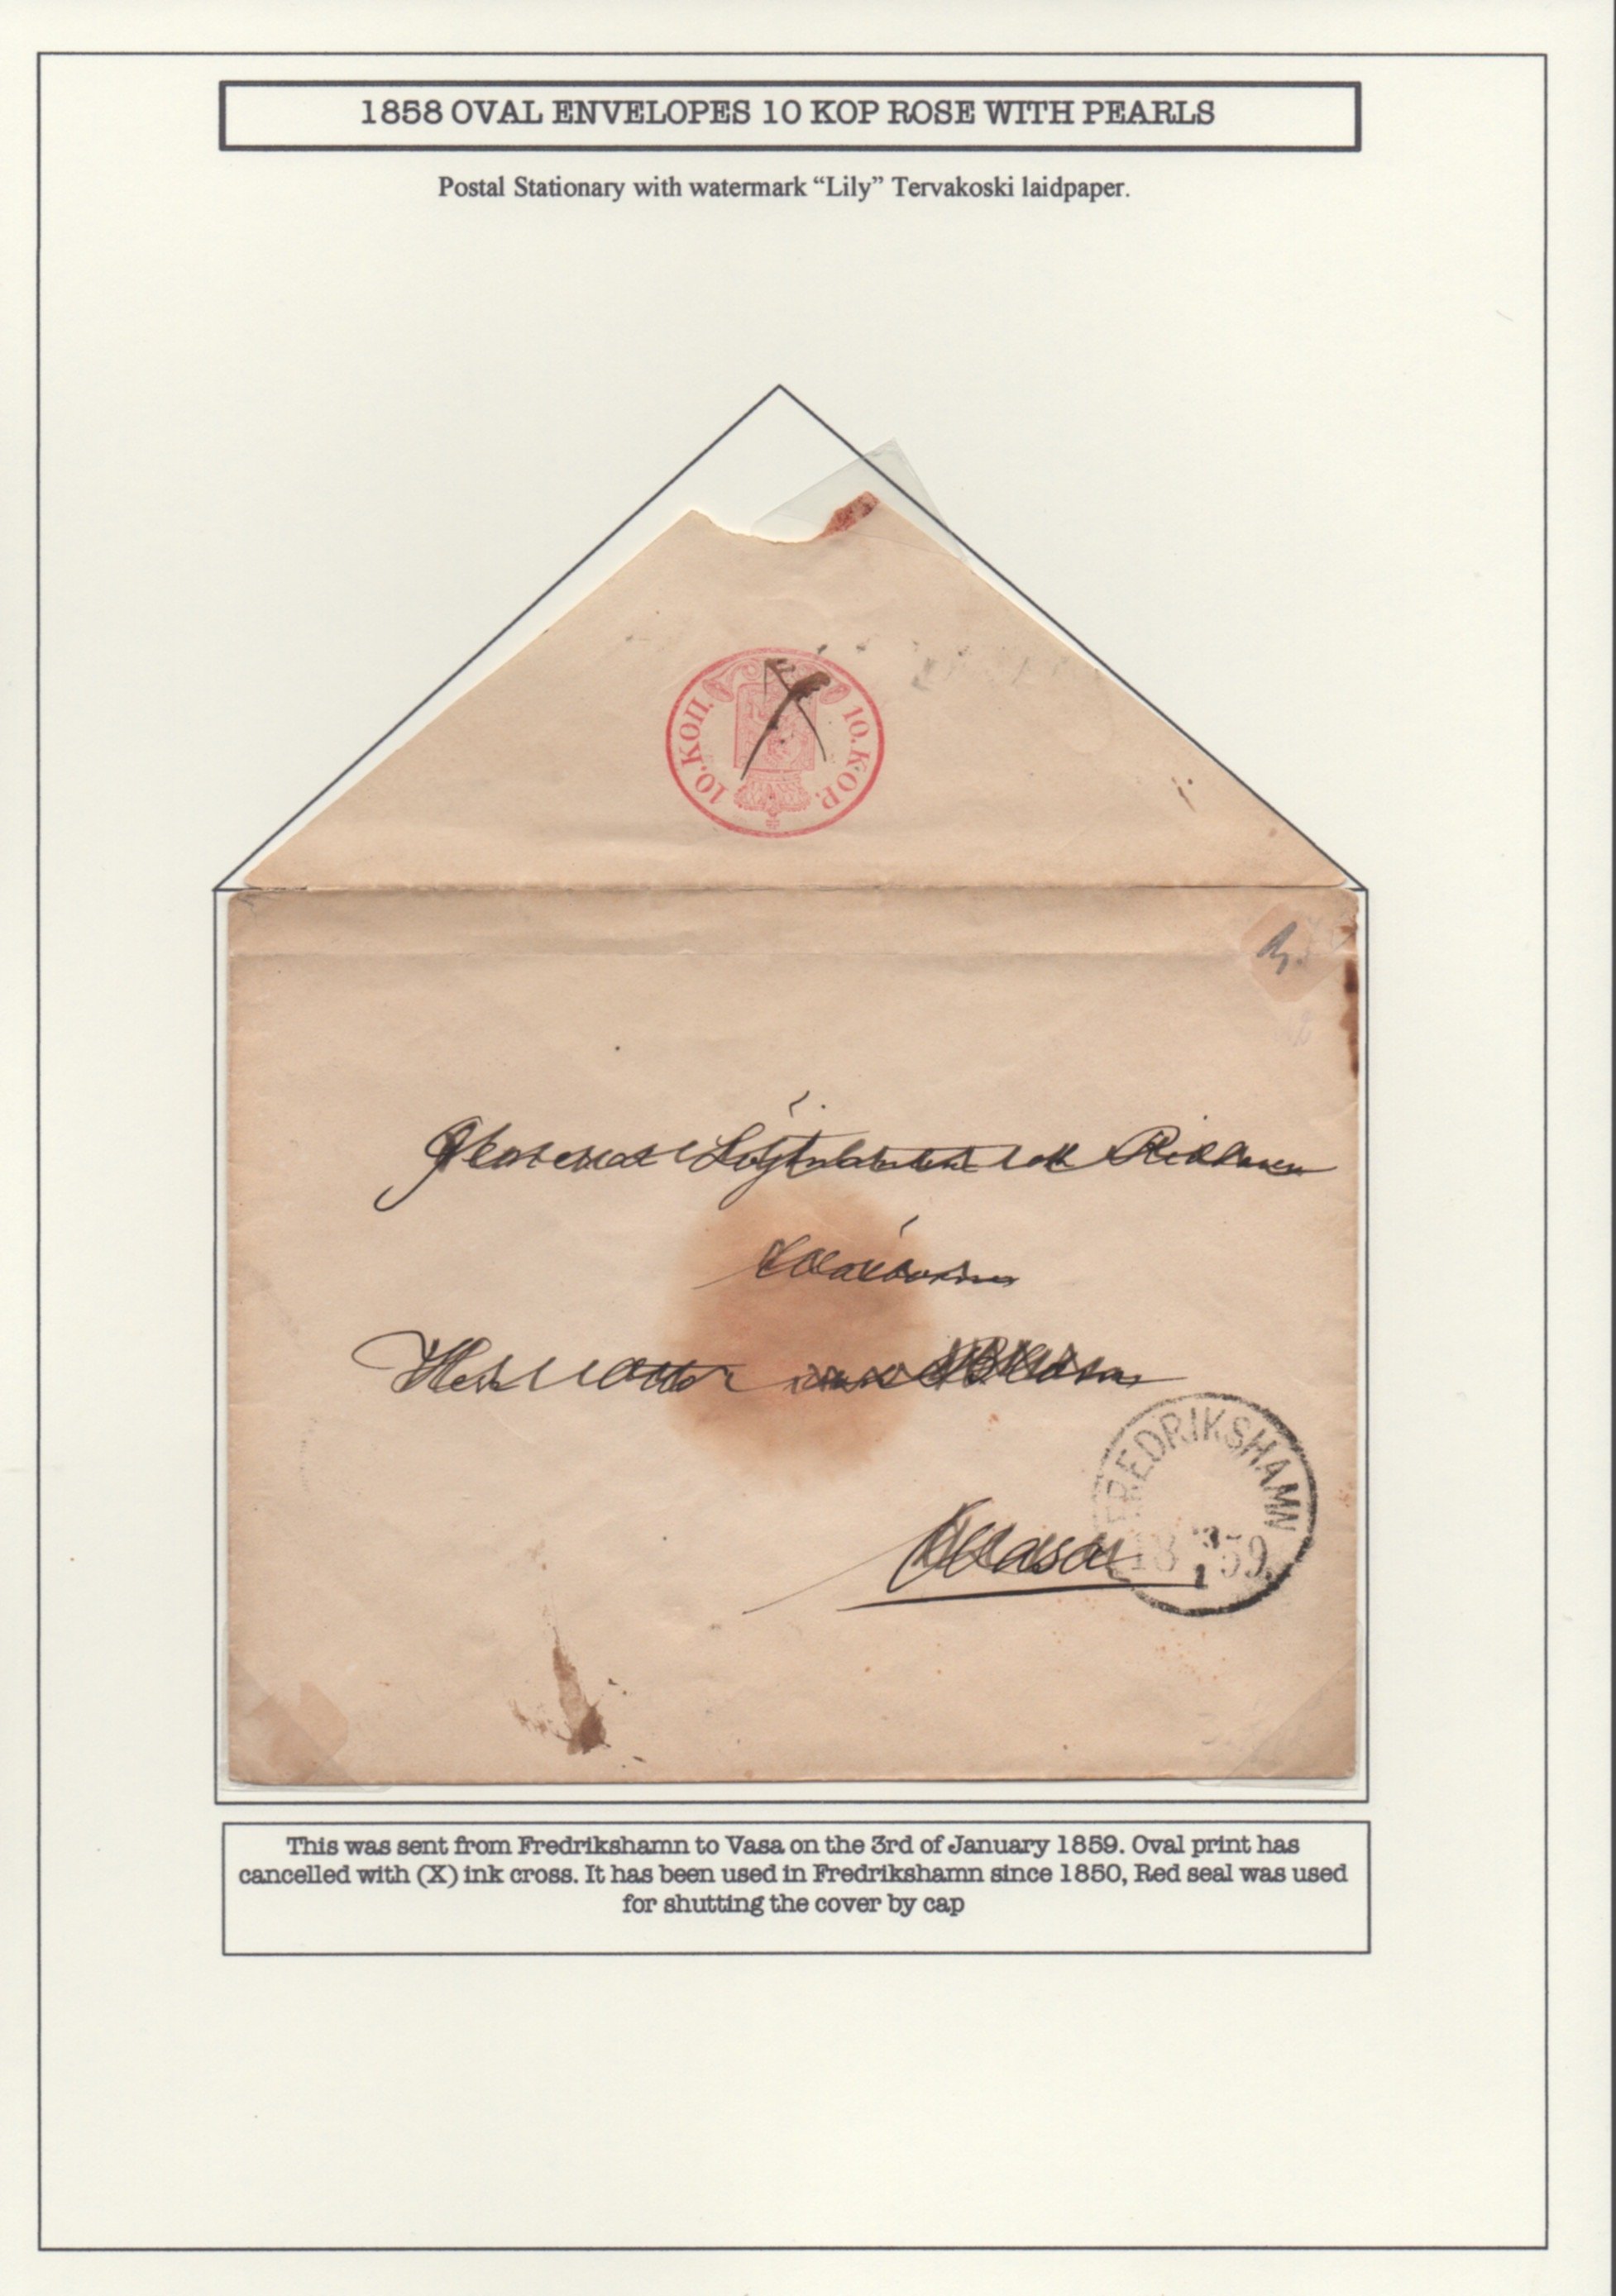 1858 OVAL ENVELOPES 10 KOP ROSE WITH PEARLS
Postal Stationary with watermark “Lily” Tervakoski laidpaper.
10.КОП. 10.KOP.
Wasa
FREDRIKSHAMN
18 3/1 59.
This was sent from Fredrikshamn to Vasa on the 3rd of January 1859. Oval print has
cancelled with (X) ink cross. It has been used in Fredrikshamn since 1850, Red seal was used
for shutting the cover by cap